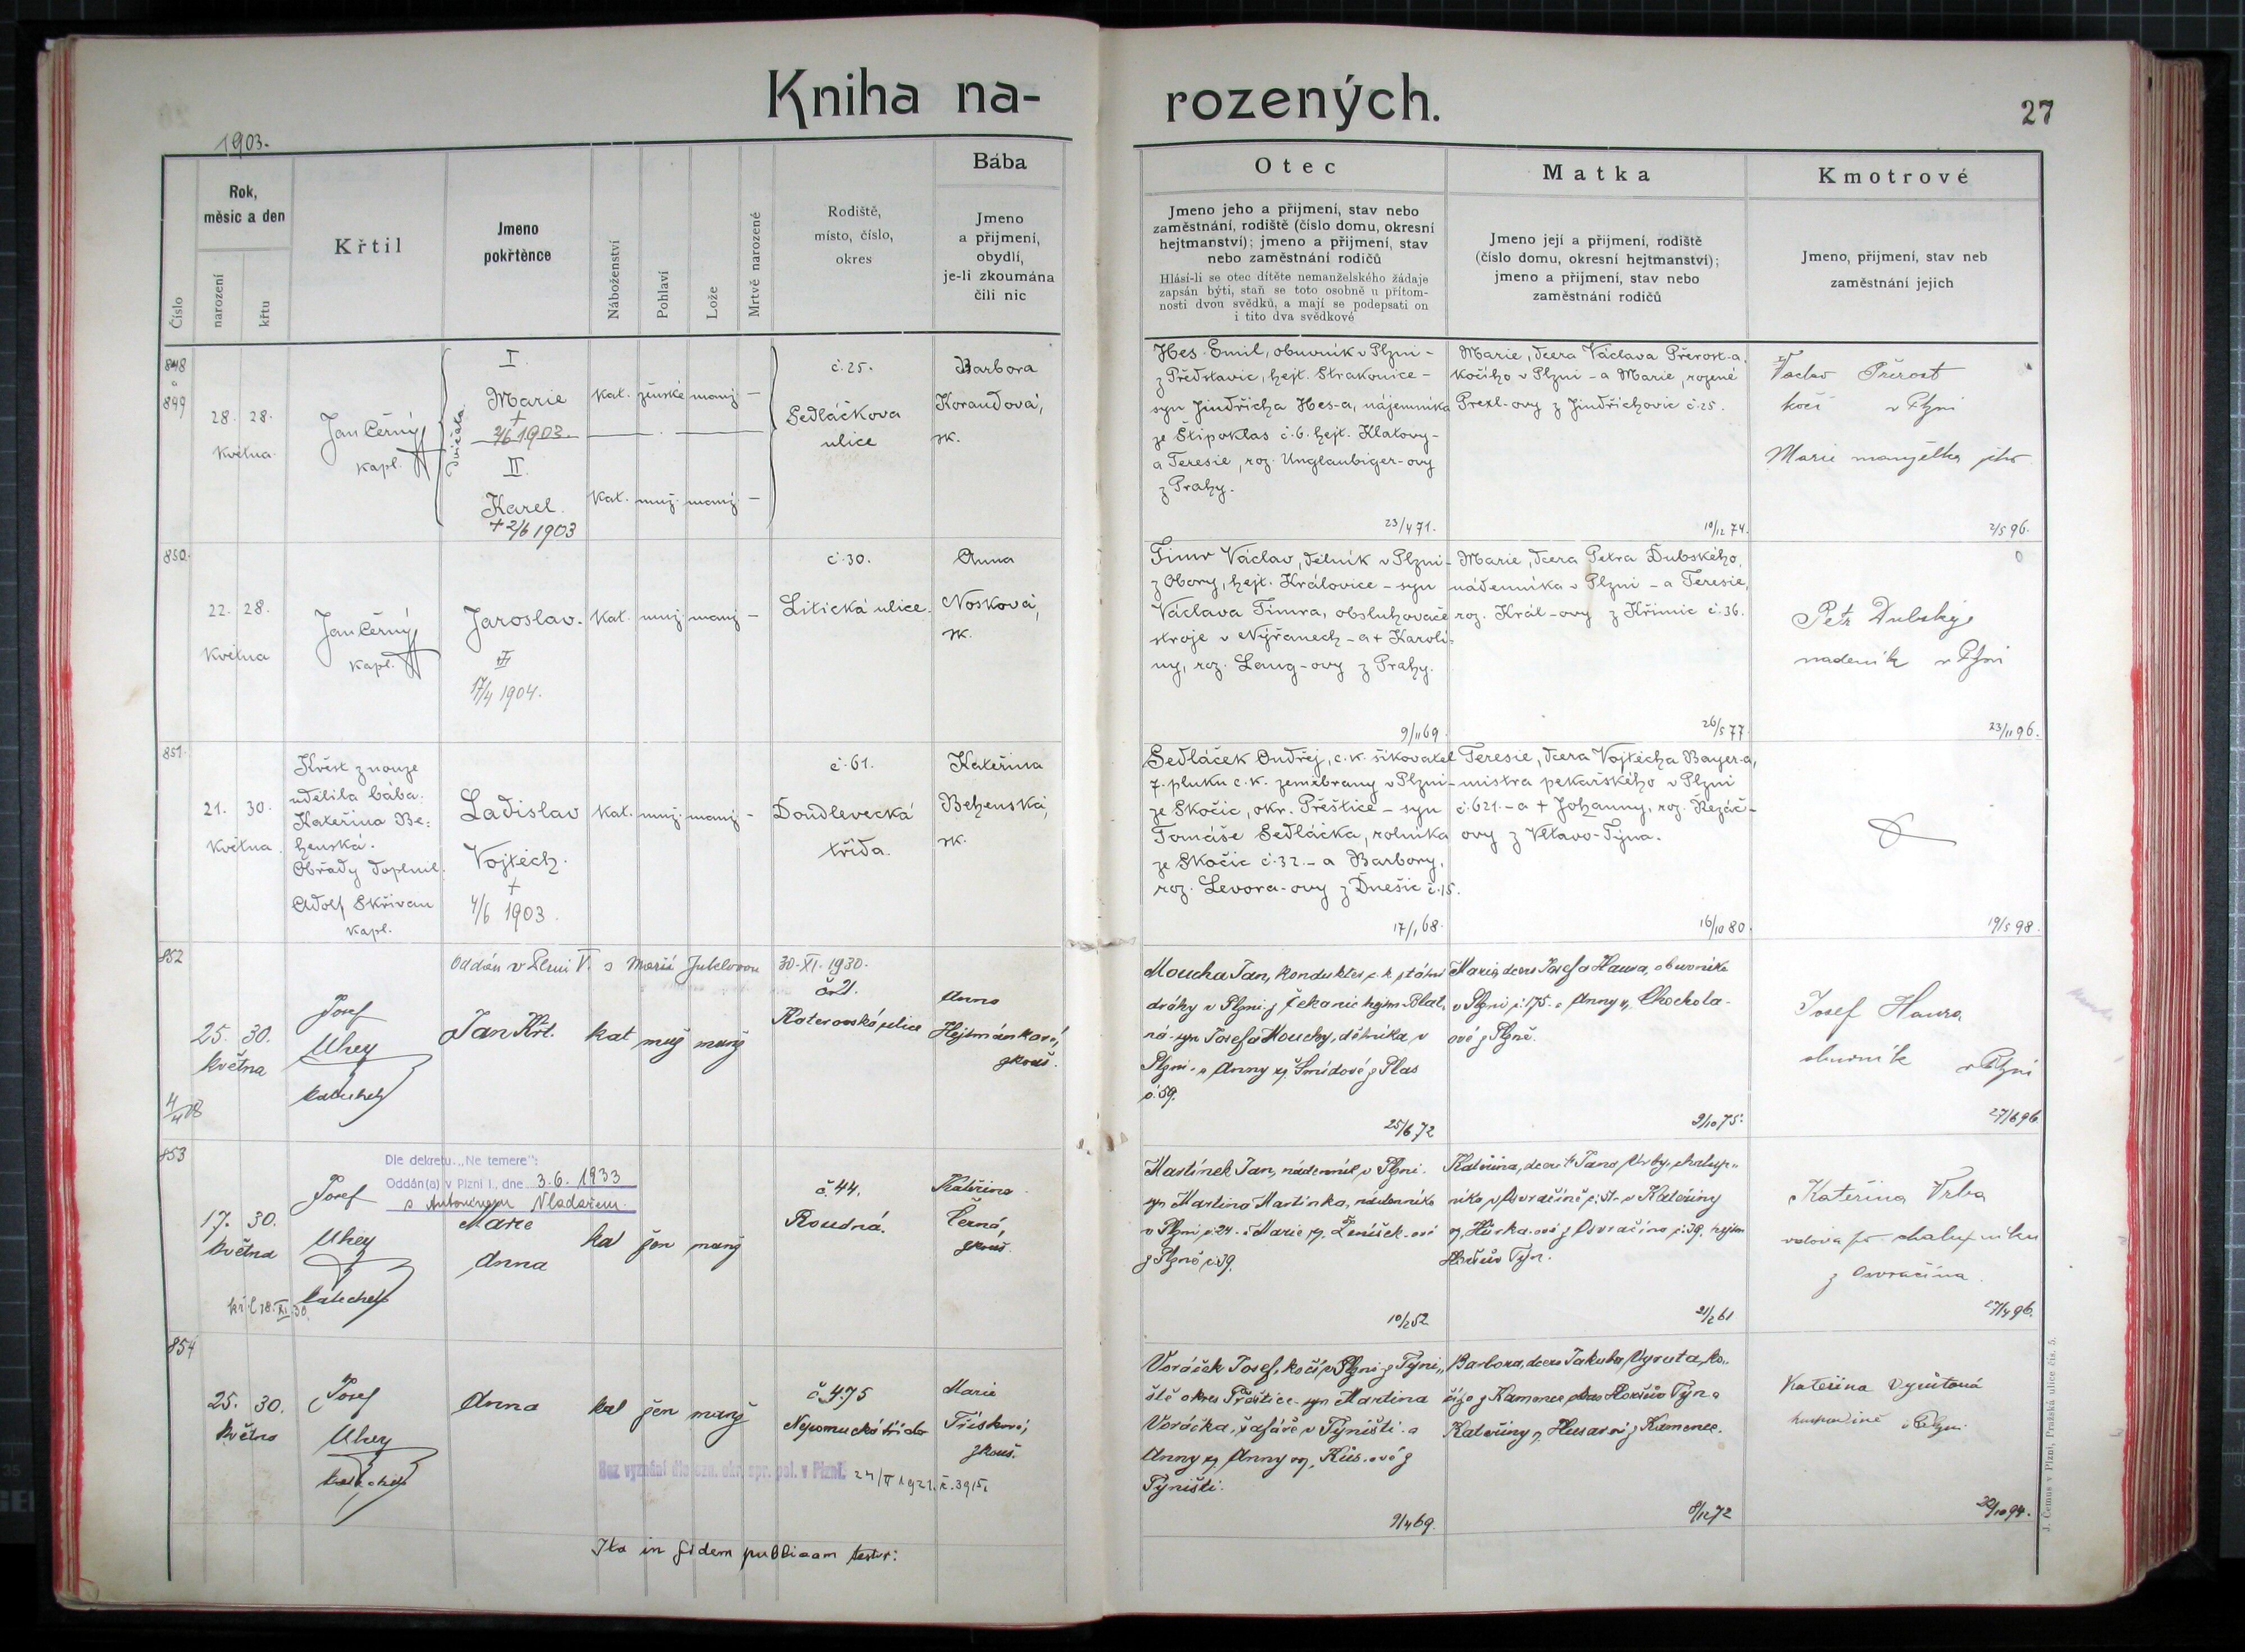 Kniha na-
rozených.
27
1903.
Číslo
Rok,
měsíc a den
narození
křtu
Křtil
Jmeno
pokřtěnce
Náboženství
Pohlaví
Lože
Mrtvě narozené
Rodiště,
místo, číslo,
okres
Bába
Jmeno
a přijmení,
obydlí,
je-li zkoumána
čili nic
Otec
Jmeno jeho a přijmení, stav nebo
zaměstnání, rodiště (číslo domu, okresní
hejtmanství); jmeno a přijmení, stav
nebo zaměstnání rodičů
Hlásí-li se otec dítěte nemanželského žádaje
zapsán býti, staň se toto osobně u přítom-
nosti dvou svědků, a mají se podepsati on
i tito dva svědkové
Matka
Jmeno její a přijmení, rodiště
(číslo domu, okresní hejtmanství);
jmeno a přijmení, stav nebo
zaměstnání rodičů
Kmotrové
Jmeno, přijmení, stav neb
zaměstnání jejich
848
a
849
28. 28.
Května
Jan Černý
kapl.
Dvojčata
I.
Marie
+
2/6 1903.
II.
Karel.
+ 2/6 1903
kat. ženské manž. –
kat. muž. manž. –
č. 25.
Sedláčkova
ulice
Barbora
Korandová,
zk.
Hes Emil, obuvník v Plzni –
z Předslavic, hejt. Strakonice –
syn Jindřicha Hes-a, nájemníka
ze Štipoklas č. 6. hejt. Klatovy –
a Teresie, roz. Unglaubiger-ovy
z Prahy.
23/4 71.
Marie, dcera Václava Přerost-a,
kočího v Plzni – a Marie, rozené
Prexl-ovy z Jindřichovic č. 25.
10/12 74.
Václav Přerost
kočí v Plzni
Marie manželka jeho
2/5 96.
850.
22. 28.
Května
Jan Černý
kapl.
Jaroslav.
17/4 1904.
kat. muž. manž. –
č. 30.
Litická ulice.
Anna
Nosková,
zk.
Timr Václav, dělník v Plzni –
z Obory, hejt. Královice – syn
Václava Timra, obsluhovače
stroje v Nýřanech – a + Karoli=
ny, roz. Lang-ovy z Prahy.
9/11 69.
Marie, dcera Petra Dubského,
nádenníka v Plzni – a Teresie,
roz. Král-ovy z Křimic č. 36.
26/5 77.
Petr Dubský
nadeník v Plzni
23/11 96.
851.
21. 30.
Května.
Křest z nouze
udělila bába.
Kateřina Be=
henská.
Obřady doplnil:
Adolf Skřivan
kapl.
Ladislav
Vojtěch.
+
4/6 1903.
kat. muž. manž. –
č. 61.
Doudlevecká
třída.
Kateřina
Behenská,
zk.
Sedláček Ondřej, c. k. šikovatel
7. pluku c. k. zeměbrany v Plzni –
ze Skočic, okr. Přeštice – syn
Tomáše Sedláčka, rolníka
ze Skočic č. 32. – a Barbory,
roz. Levora-ovy z Dnešic č. 15.
17/1 68.
Teresie, dcera Vojtěcha Bayer-a,
mistra pekařského v Plzni
č. 621. – a + Johanny, roz. Řezáč-
ovy z Vltavo-Týna.
16/10 80.
19/5 98.
852
Oddán v Plzni V. s Marií Jubelovou 30. XI. 1930.
25. 30.
Května
4/4 08
Josef
Uhey
katecheta
Jan Křt.
kat muž manž
č. 21.
Koterovská ulice
Anna
Hejtmánková,
zkouš.
Moucha Jan, kondukter c. k. státní
dráhy v Plzni z Čekanic hejtm. Blat-
ná – syn Josefa Mouchy, dělníka v
Plzni – a Anny roz. Šmídové z Plas
č. 59.
25/6 72
Marie, dcera Josefa Haura, obuvníka
v Plzni č. 175. a Anny r. Chochola-
ové z Plzně.
9/10 75.
Josef Haura
obuvník v Plzni
27/6 96
853
Dle dekretu „Ne temere“:
Oddán(a) v Plzni I., dne 3. 6. 1933
s Antonínem Vladařem
17. 30.
Května
Josef
Uhey
katecheta
Marie
Anna
kat žen manž
č. 44.
Roudná.
Kateřina
Černá,
zkouš.
Martínek Jan, nádenník v Plzni.
syn Martina Martínka, nádenníka
v Plzni č. 24. a Marie roz. Ženíšek-ové
z Plzně č. 39.
10/2 52
Kateřina, dcera + Jana Vrby, chalup-
níka v Osvračíně č. 51. a Kateřiny
roz. Hůrka-ové z Osvračína č. 39. hejtm
Horšův Týn.
21/2 61
Kateřina Vrba
vdova po chalupníku
z Osvračína
27/4 96.
854
25. 30.
Května
Josef
Uhey
katecheta
Anna
kat žen manž
č. 475
Nepomucká třída
Marie
Třísková,
zkouš.
Bez vyznání dle ozn. okr. spr. pol. v Plzni. 24/II 1921. č. 3915.
Voráček Josef, kočí v Plzni z Týni-
ště okres Přeštice – syn Martina
Voráčka, šafáře v Týništi. a
Anny roz. Anny roz. Kůs-ové z
Týniště.
9/4 69.
Barbora, dcera Jakuba Vyruta, ko-
čího z Kamence okres Horšův Týn a
Kateřiny r. Husar-ové z Kamence.
8/12 72
Kateřina Vyrutová
v Plzni
30/10 94.
Ita in fidem publicam testor:
J. Čemus v Plzni, Pražská ulice čís. 5.